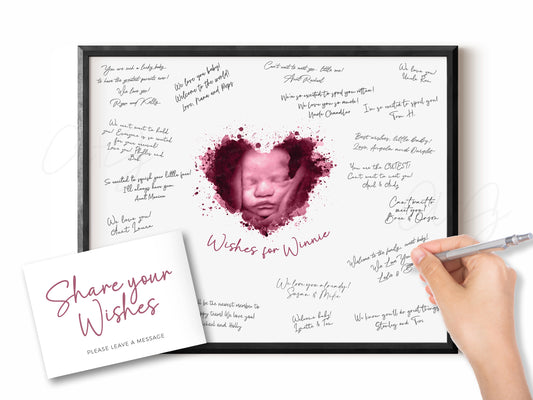 You are such a lucky baby
to have the greatest parents ever!
We love you!
Ross and Kelly
We love you baby!
Welcome to the world!
Love, Nana and Pops
Can't wait to meet you, little one!
Aunt Rachel
We love you!
Uncle Ron
We're so excited to spoil you rotten!
We love you so much!
Uncle Chandler
I'm so excited to spoil you!
Tom H.
We can't wait to hold
you! Everyone is so excited
for your arrival!
Love you! Phyllis and
Bob
Best wishes, little baby!
Love, Angela and Dwight
So excited to squish your little face!
I'll always have you
Aunt Monica
You are the CUTEST!
Can't wait to meet you!
Can't wait to
meet you!
We love you!
Aunt Laura
Wishes for Winnie
Welcome to the family, sweet baby!
We Love You
We love you already!
Susan & Mike
be the newest member to
love you!
and Holly
Welcome baby!
& Tom
We know you'll do great things
Stanley and Teri
Share your
Wishes
PLEASE LEAVE A MESSAGE